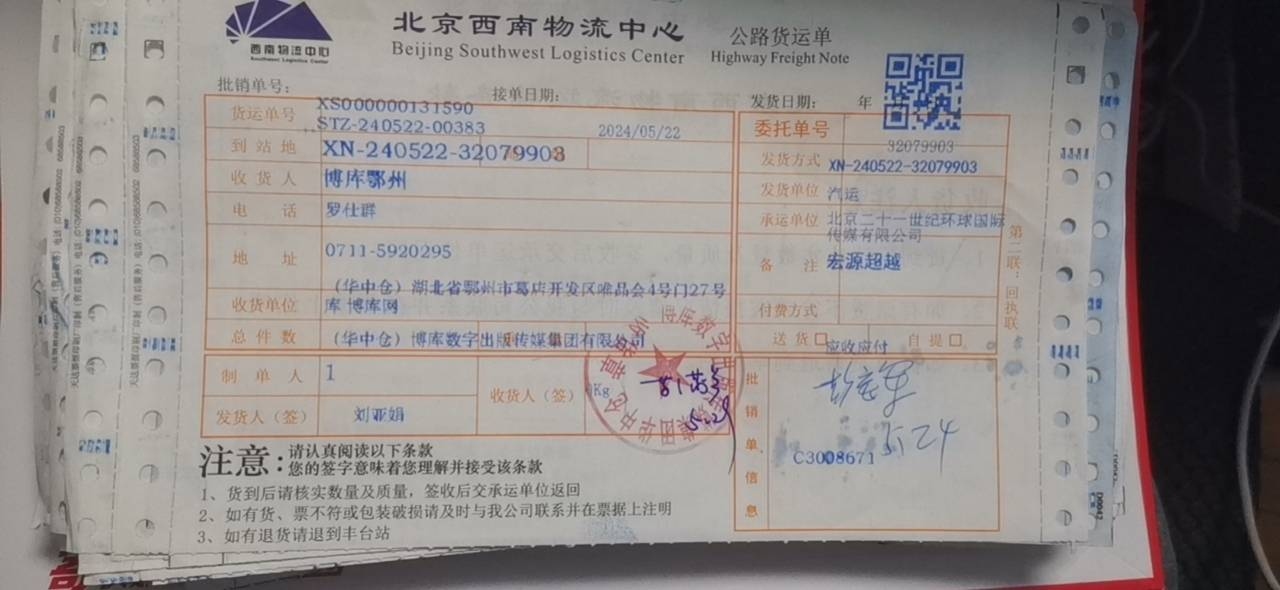 西南物流中心
Southwest Logistics Center
北京西南物流中心
Beijing Southwest Logistics Center
公路货运单
Highway Freight Note
批销单号：
接单日期：
发货日期： 年
货运单号 XS000000131590
STZ-240522-00383 2024/05/22
到站地 XN-240522-32079903
收货人 博库鄂州
电 话 罗仕群
地 址 0711-5920295
(华中仓) 湖北省鄂州市葛店开发区唯品会4号门27号
收货单位 库 博库网
总件数 (华中仓) 博库数字出版传媒集团有限公司
制单人 1
收货人（签） 0Kg
发货人（签） 刘亚娟
5.29
委托单号
32079903
发货方式 XN-240522-32079903
发货单位 汽运
承运单位 北京二十一世纪环球国际
传媒有限公司
备 注 宏源超越
付费方式
送货 应收应付 自提
批销单信息
5.24
C3008671
第二联：回执联
注意：
请认真阅读以下条款
您的签字意味着您理解并接受该条款
1、货到后请核实数量及质量，签收后交承运单位返回
2、如有货、票不符或包装破损请及时与我公司联系并在票据上注明
3、如有退货请退到丰台站